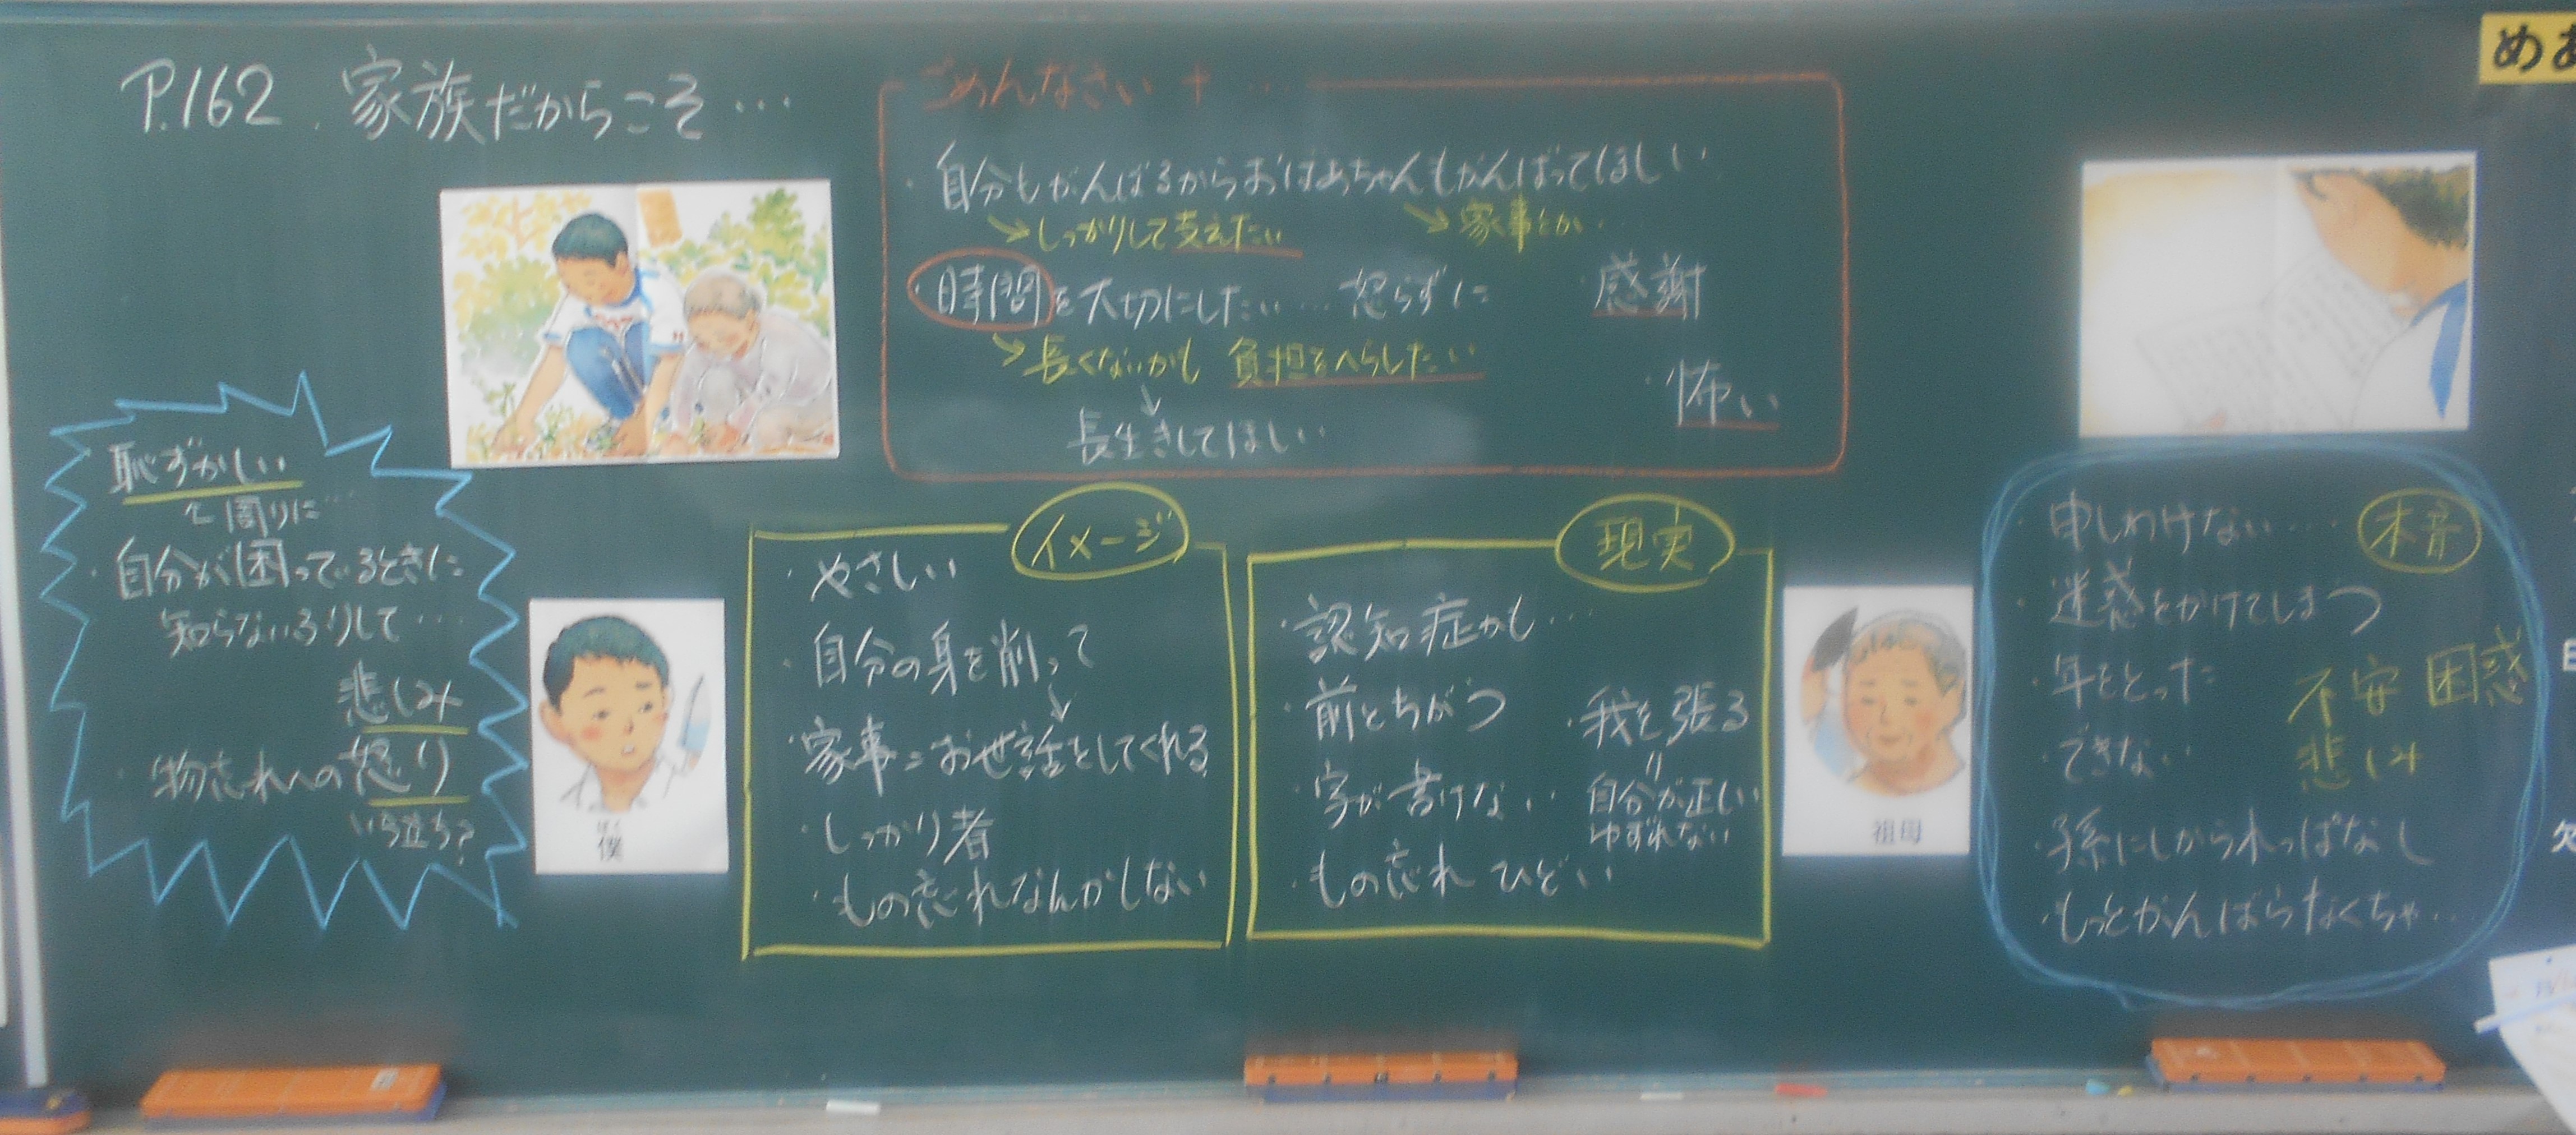 P.162 家族だからこそ…
ごめんなさい+…
・自分もがんばるからおばあちゃんもがんばってほしい
→しっかりして支えたい
→家事とか
・時間を大切にしたい…怒らずに
・感謝
→長くないかも 負担をへらしたい
↓
長生きしてほしい
・怖い
恥ずかしい
周りに…
・自分が困っているときに
知らないふりして…
悲しみ
・物忘れへの怒り
いら立ち?
ぼく
僕
イメージ
・やさしい
・自分の身を削って
↓
・家事=お世話をしてくれる
・しっかり者
・もの忘れなんかしない
現実
・認知症かも…
・前とちがう
・字が書けない
・もの忘れ ひどい
・我を張る
=
自分が正しい
ゆずれない
祖母
本音
・申しわけない…
・迷惑をかけてしまう
・年をとった
・できない
・孫にしかられっぱなし
・もっとがんばらなくちゃ…
不安 困惑
悲しみ
めあ